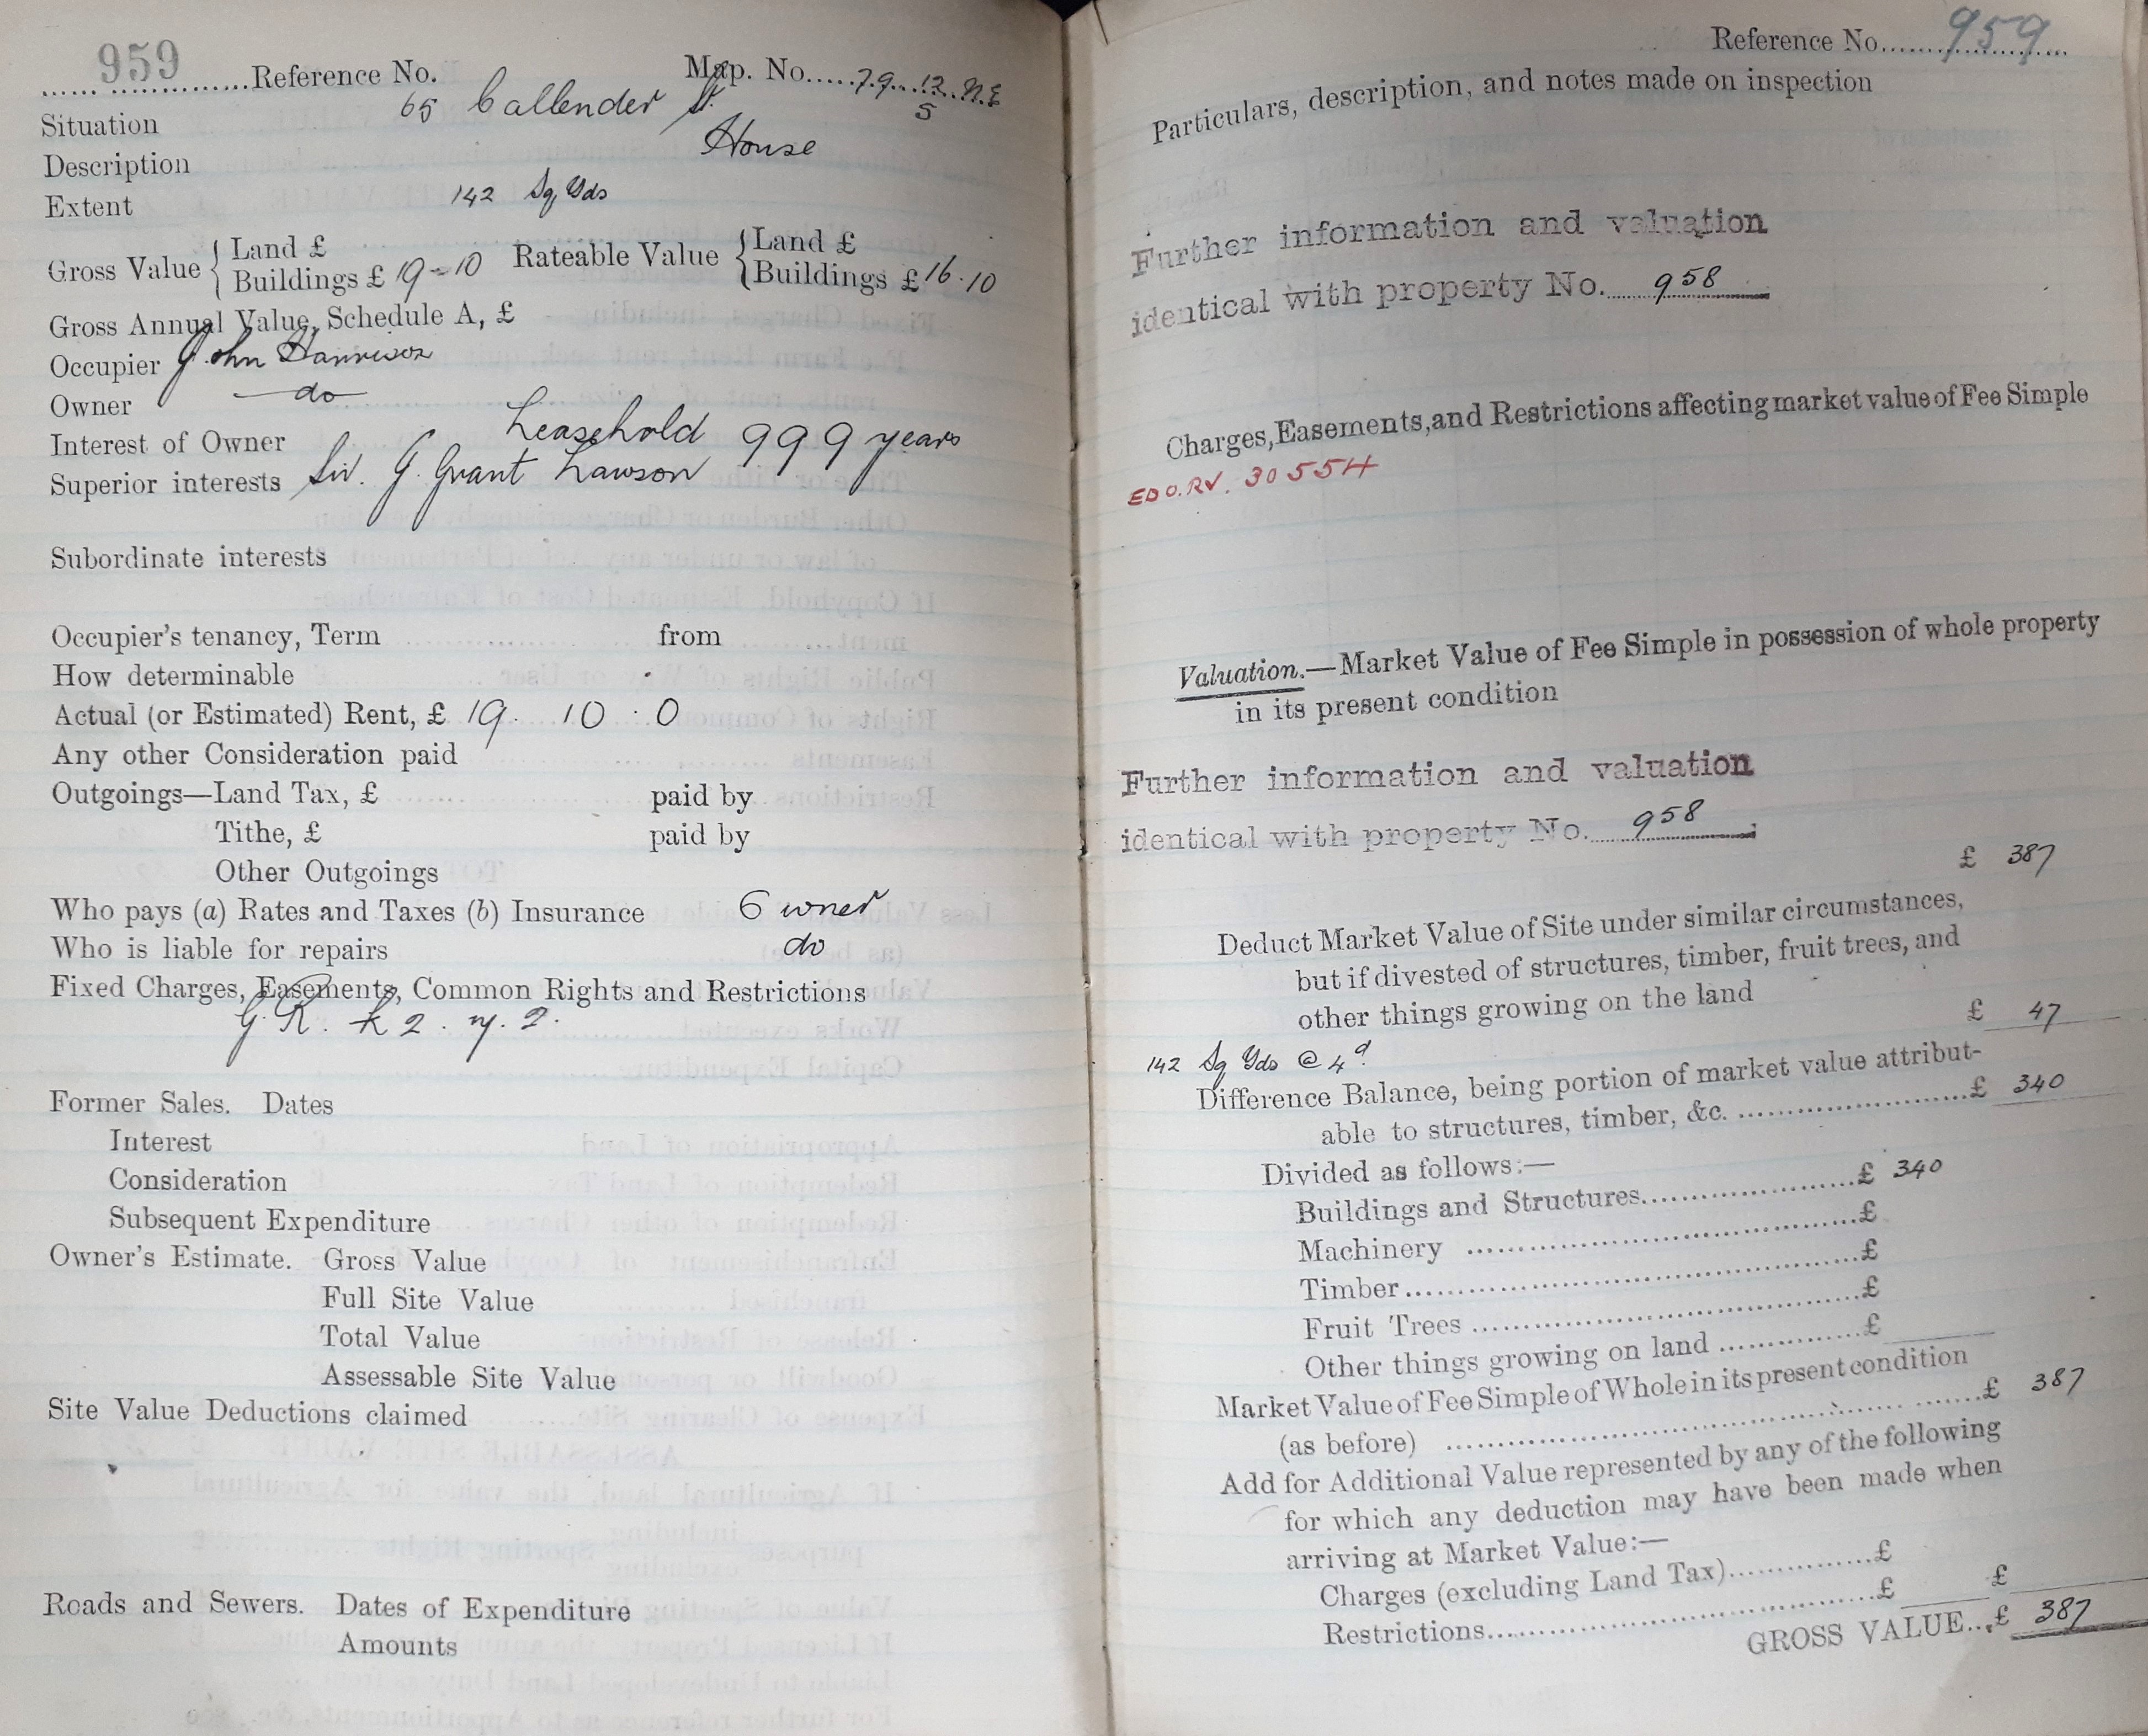 959
Reference No. Map. No. 79. 12. N.E
5
Situation 65 Callender St.
Description House
Extent 142 Sq Yds
Gross Value { Land £ Rateable Value { Land £
Buildings £ 19-10 Buildings £ 16.10
Gross Annual Value, Schedule A, £
Occupier John Harrison
Owner do
Interest of Owner Leasehold 999 years
Superior interests Sir. J. Grant Lawson
Subordinate interests
Occupier's tenancy, Term from
How determinable
Actual (or Estimated) Rent, £ 19. 10. 0
Any other Consideration paid
Outgoings—Land Tax, £ paid by
Tithe, £ paid by
Other Outgoings
Who pays (a) Rates and Taxes (b) Insurance Owner
Who is liable for repairs do
Fixed Charges, Easements, Common Rights and Restrictions
G.R. 2.
Former Sales. Dates
Interest
Consideration
Subsequent Expenditure
Owner's Estimate. Gross Value
Full Site Value
Total Value
Assessable Site Value
Site Value Deductions claimed
Roads and Sewers. Dates of Expenditure
Amounts
Reference No. 959
Particulars, description, and notes made on inspection
Further information and valuation
identical with property No. 958
Charges, Easements, and Restrictions affecting market value of Fee Simple
ED O.RV. 30554
Valuation.—Market Value of Fee Simple in possession of whole property
in its present condition
Further information and valuation
identical with property No. 958
£ 387
Deduct Market Value of Site under similar circumstances,
but if divested of structures, timber, fruit trees, and
other things growing on the land
£ 47
142 Sq Yds @ 4d
Difference Balance, being portion of market value attribut-
able to structures, timber, &c. £ 340
Divided as follows:—
Buildings and Structures £ 340
Machinery £
Timber £
Fruit Trees £
Other things growing on land £
Market Value of Fee Simple of Whole in its present condition
(as before) £ 387
Add for Additional Value represented by any of the following
for which any deduction may have been made when
arriving at Market Value:—
Charges (excluding Land Tax) £
Restrictions £ £
GROSS VALUE £ 387